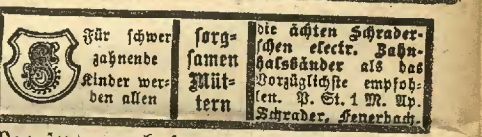 Für schwer
zahnende
Kinder wer=
den allen
sorg=
samen
Müt=
tern
die ächten Schrader=
schen electr. Zahn=
halsbänder als das
Vorzüglichste empfoh=
len. P. St. 1 M. Ap.
Schrader, Feuerbach.